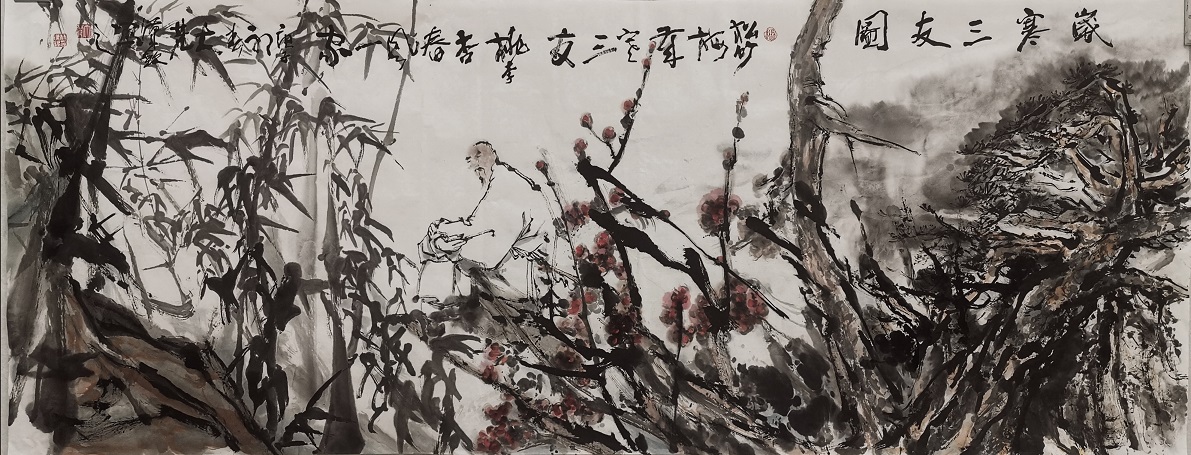 歲寒三友圖
松竹梅歲寒三友桃李杏春風一家